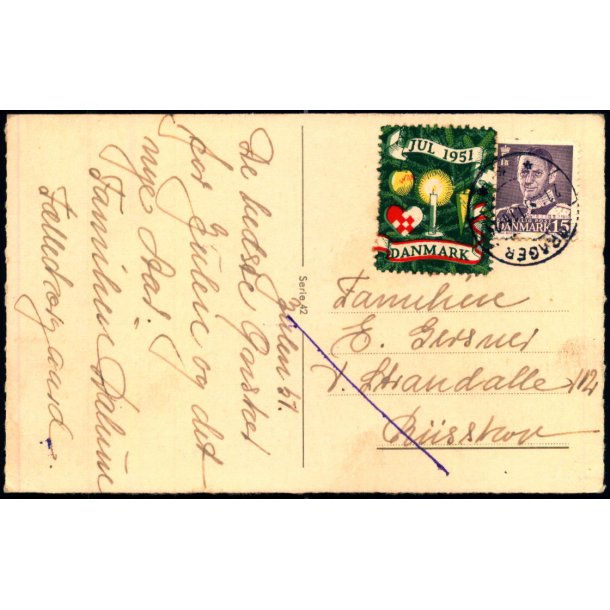 Julen 51.
De bedste Ønsker
for Julen og det
nye Aar!
Familien
JUL 1951
DANMARK
DANMARK 15
DRAGER
Serie 42
Familien
E. Gersner
V. Strandalle 112
Riisskov